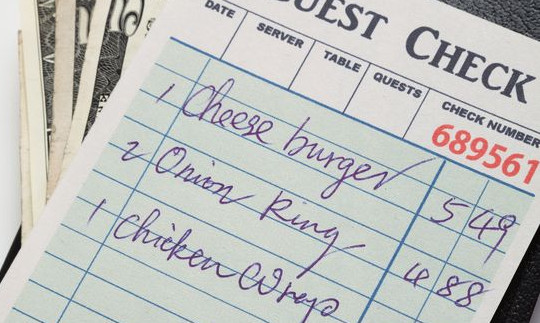 GUEST CHECK
DATE SERVER TABLE QUESTS CHECK NUMBER
689561
1 Cheese burger 5 49
2 Onion Ring 4 88
1 Chicken Wrap